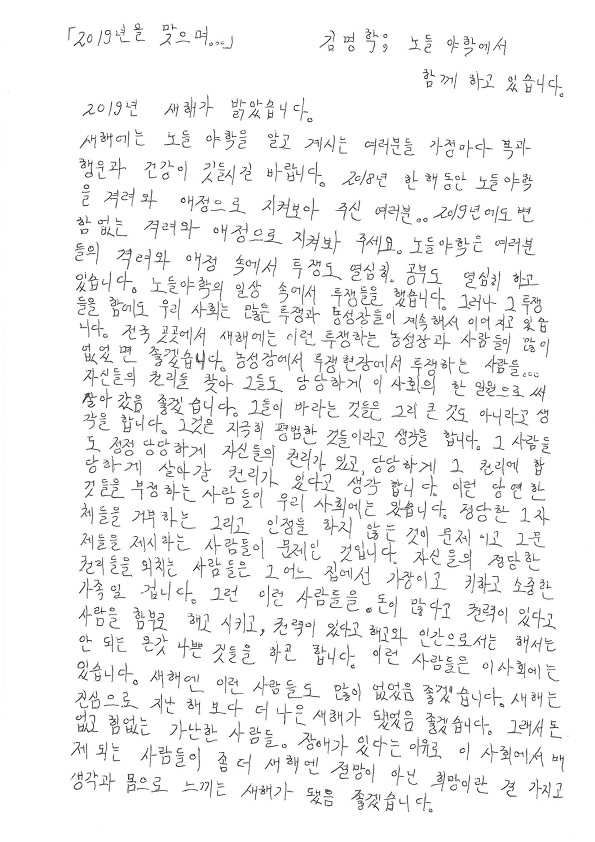 「2019년을 맞으며...」 김명학; 노들 야학에서
함께 하고 있습니다.
2019년 새해가 밝았습니다.
새해에는 노들 야학을 알고 계시는 여러분들 가정마다 복과
행운과 건강이 깃들시길 바랍니다. 2018년 한해동안 노들야학
을 격려와 애정으로 지켜보아 주신 여러분.. 2019년에도 변
함없는 격려와 애정으로 지켜봐 주세요. 노들야학은 여러분
들의 격려와 애정 속에서 투쟁도 열심히. 공부도 열심히 하고
있습니다. 노들야학의 일상 속에서 투쟁들을 했습니다. 그러나 그 투쟁
들을 함에도 우리 사회는 많은 투쟁과 농성장들이 계속해서 이어지고 있습
니다. 전국 곳곳에서 새해에는 이런 투쟁하는 농성장과 사람들이 많이
없었면 좋겠습니다. 농성장에서 투쟁현장에서 투쟁하는 사람들...
자신들의 권리들 찾아 그들도 당당하게 이 사회의 한 일원으로써
살아 갔음 좋겠습니다. 그들이 바라는 것들은 그리 큰 것도 아니라고 생
각을 합니다. 그것은 지극히 평범한 것들이라고 생각을 합니다. 그 사람들
도 정정 당당하게 자신들의 권리가 있고, 당당하게 그 권리에 합
당하게 살아갈 권리가 있다고 생각 합니다. 이런 당연한
것들을 부정하는 사람들이 우리 사회에는 있습니다. 정당한 그 자
체들을 거부하는 그리고 인정을 하지 않는 것이 문제이고 그 문
제들을 제시하는 사람들이 문제인 것입니다. 자신들의 정당한
권리들을 외치는 사람들은 그 어느 집에서 가장이고 귀하고 소중한
가족일 겁니다. 그런 이런 사람들을. 돈이 많다고 권력이 있다고
사람을 함부로 해고 시키고, 권력이 있다고 해고와 인간으로서는 해서는
안 되는 온갖 나쁜 것들을 하곤 합니다. 이런 사람들은 이 사회에는
있습니다. 새해엔 이런 사람들도 많이 없었음 좋겠습니다. 새해는
진심으로 지난 해 보다 더 나은 새해가 됐었음 좋겠습니다. 그래서 돈
없고 힘없는 가난한 사람들. 장애가 있다는 이유로 이 사회에서 배
제 되는 사람들이 좀 더 새해엔 절망이 아닌 희망이란 걸 가지고
생각과 몸으로 느끼는 새해가 됐음 좋겠습니다.